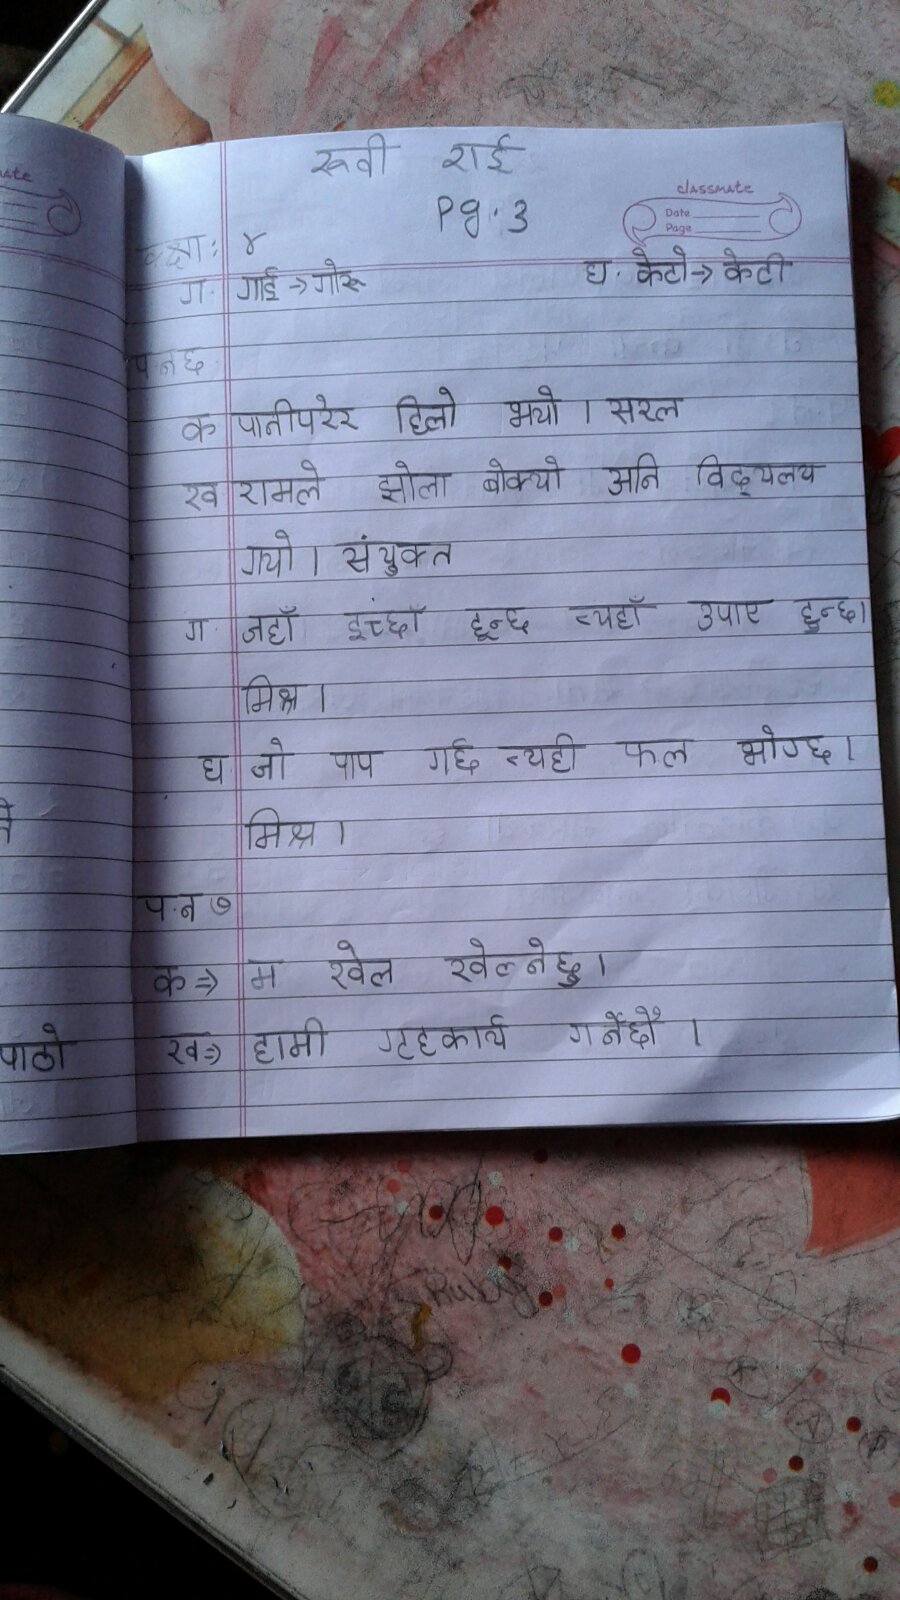 रूवी राई
Pg. 3
classmate
Date
Page
कक्षा: ४
ग. गाई → गोरू घ. केटो → केटी
प.न ६
क पानीपरेर हिलो भयो । सरल
ख रामले झोला बोक्यो अनि विद्यलय
गयो । संयुक्त
ग जहाँ इच्छाँ हून्छ त्यहाँ उपाए हुन्छ।
मिश्र ।
घ जो पाप गर्छ त्यही फल भोग्छ ।
मिश्र ।
प.न ७
क ⇒ म खेल खेल्नेछु ।
पाठो
ख ⇒ हामी गृहकार्य गर्नेछौँ ।
Ruby